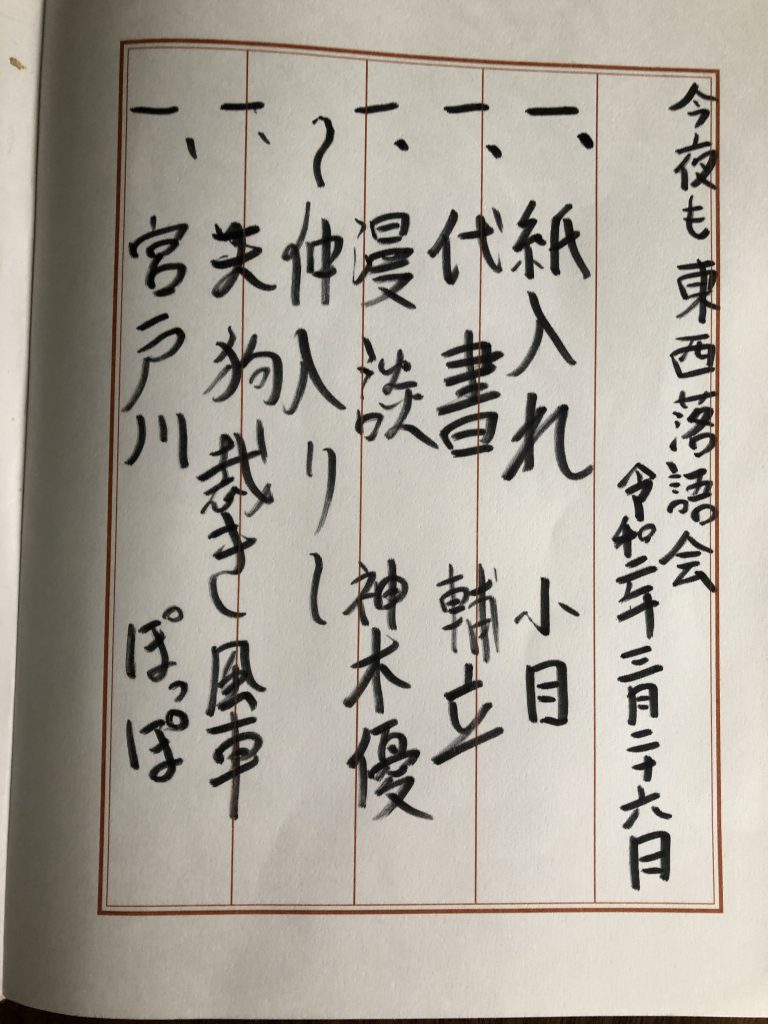 今夜も東西落語会
令和二年三月二十六日
一、紙入れ 小目
一、代書 輔立
一、漫談 神木優
〜仲入り〜
一、天狗裁き 風車
一、宮戸川 ぽっぽ